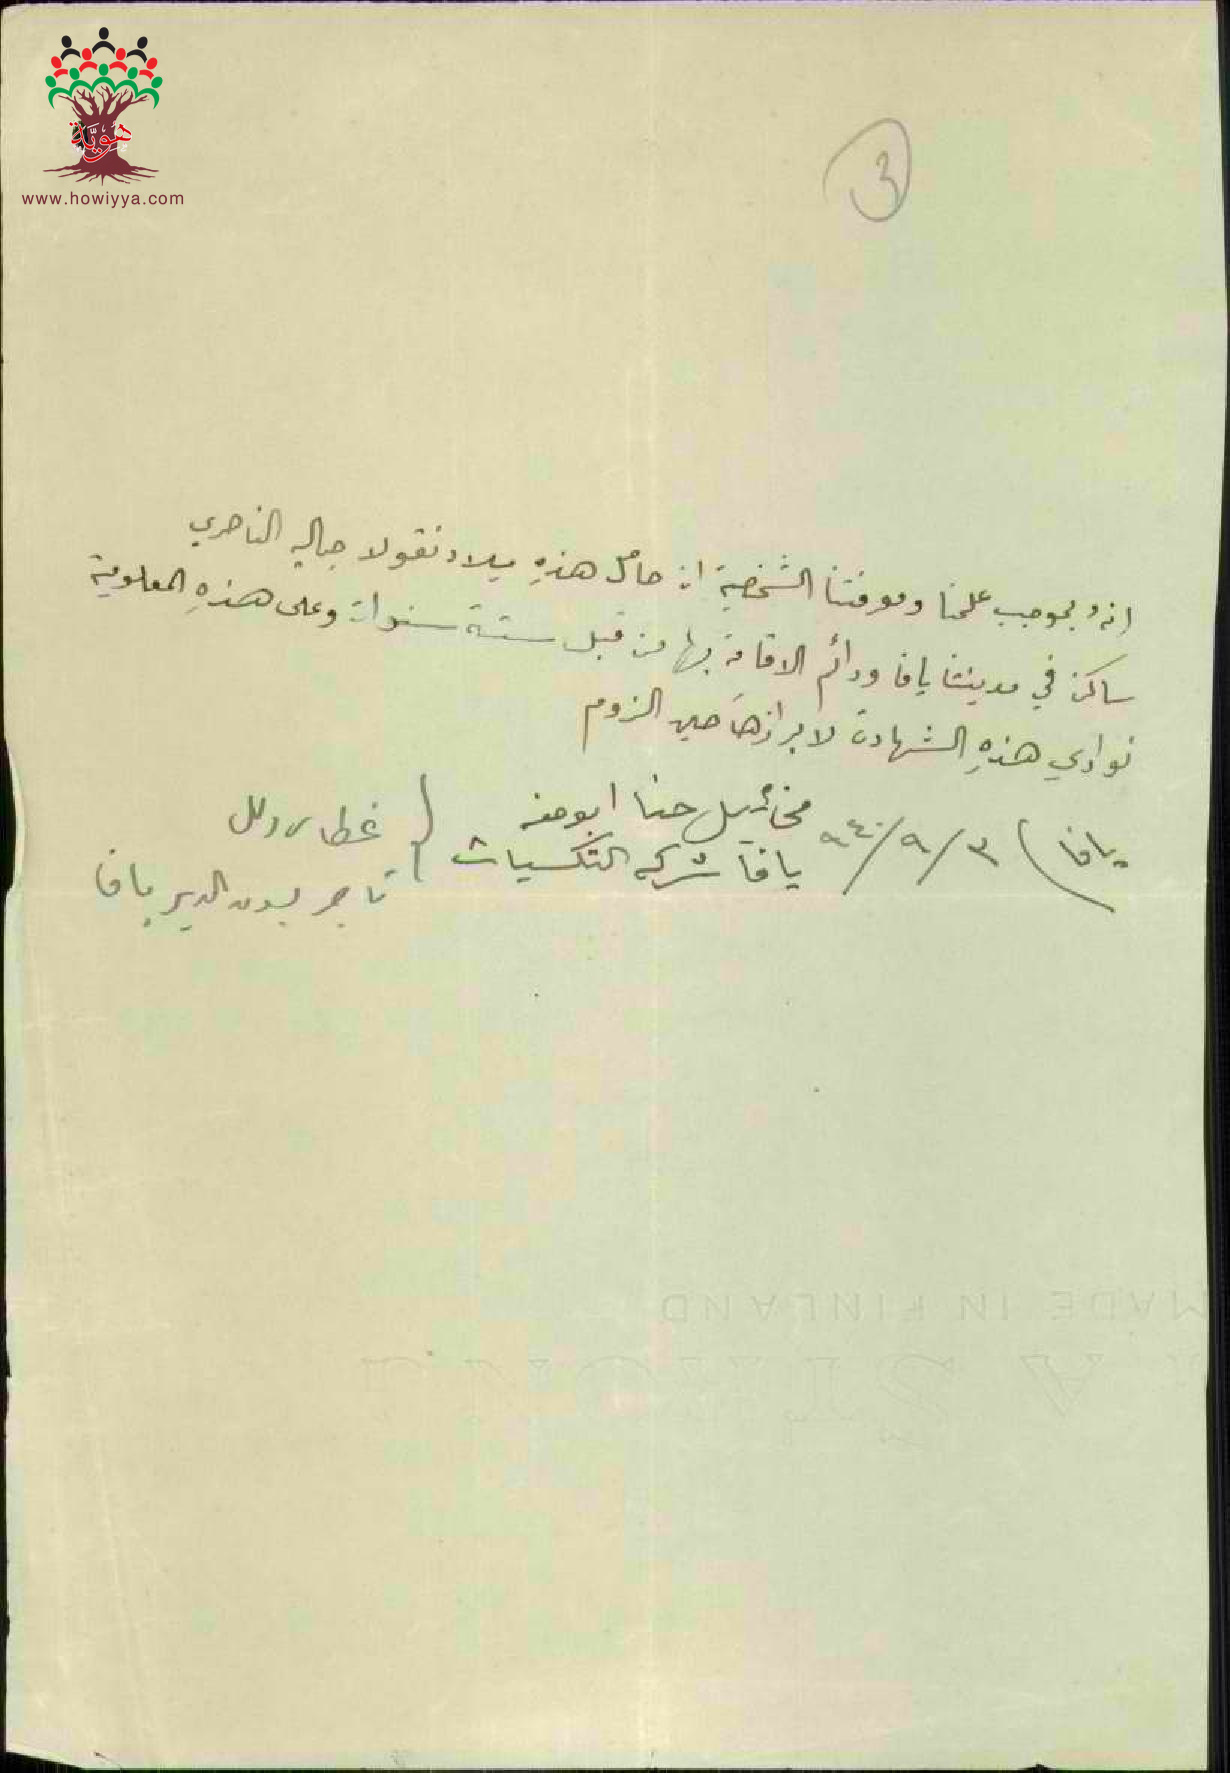 هويّة
www.howiyya.com
3
انهُ بموجب علمنا ومعرفتنا الشخصية ان حامل هذهِ ميلاد نقولا الناصري
ساكن في مدينتنا يافا ودائم الاقامة بها من قبل ستة سنوات وعلى هذهِ المعلومية
نوادي هذهِ الشهادة لابرازها حين الزوم
يافا) ٣/٩/٩٤٠ مخائيل حنا ابو
يافا شركة التكسيات
غطاس
تاجر يافا
MADE IN FINLAND